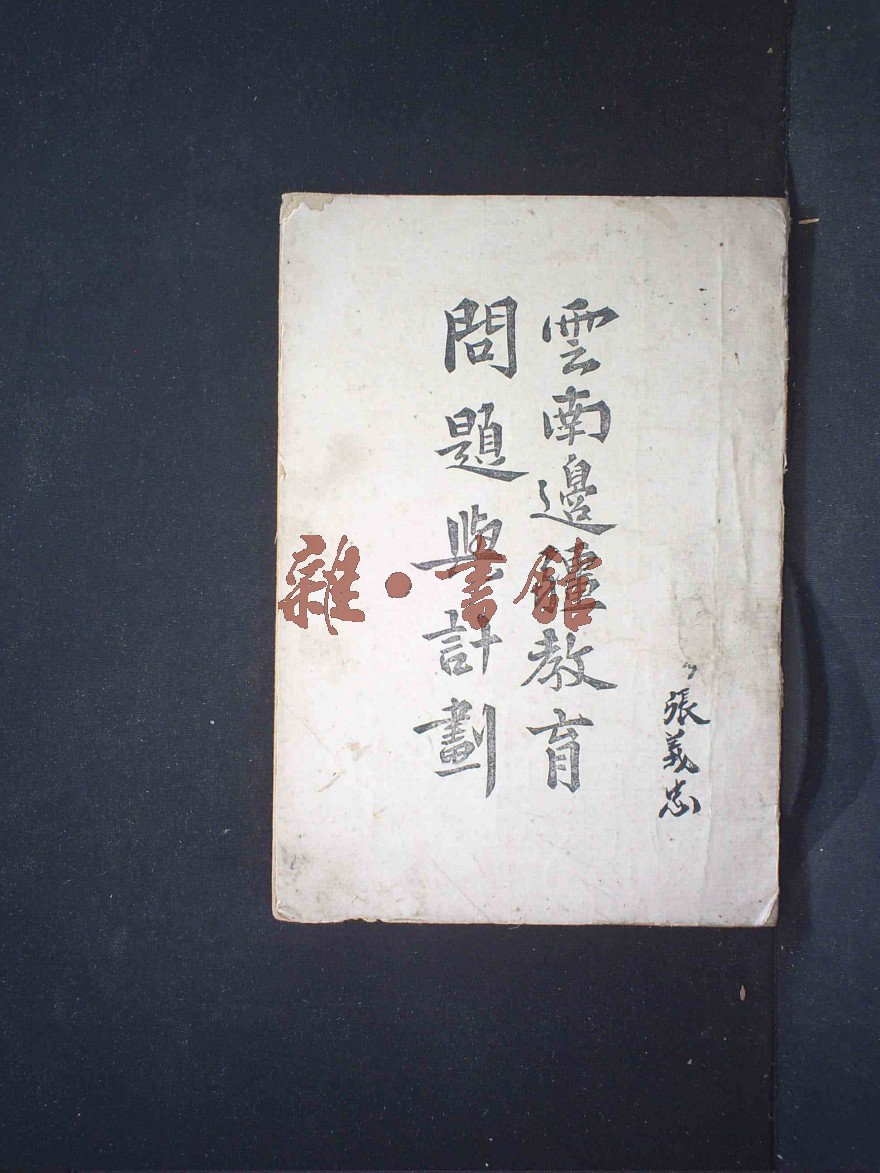 雲南邊疆教育
問題與計劃
張義忠
雜·書館